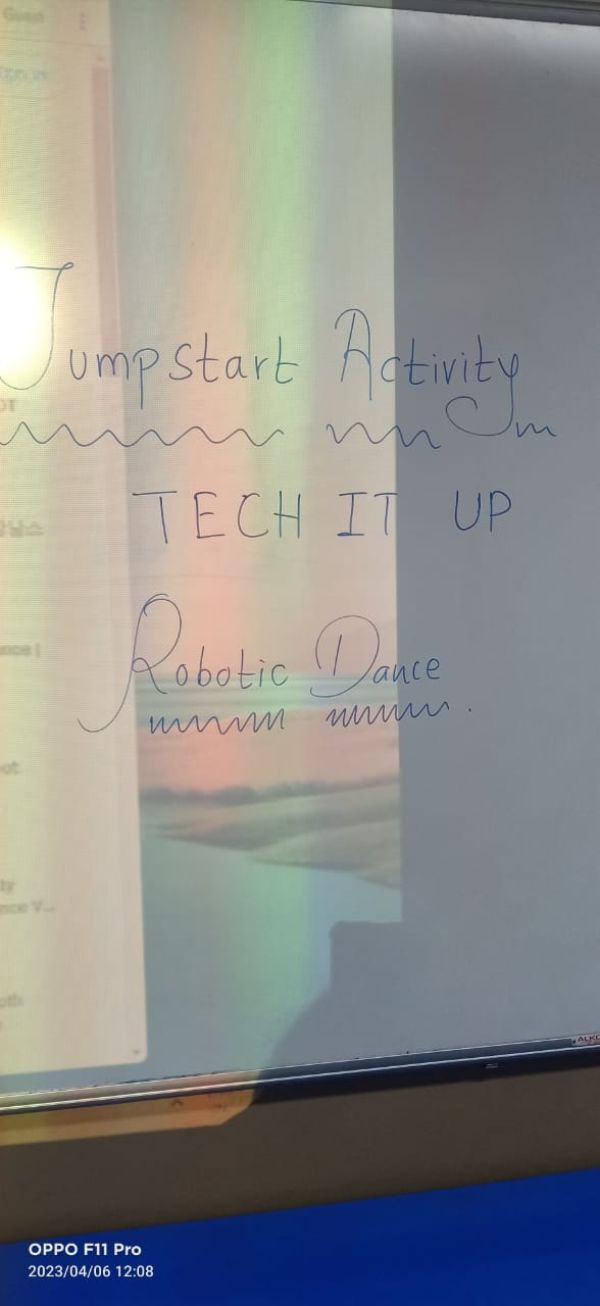 Guest
Jumpstart Activity
TECH IT UP
Robotic Dance
OPPO F11 Pro
2023/04/06 12:08